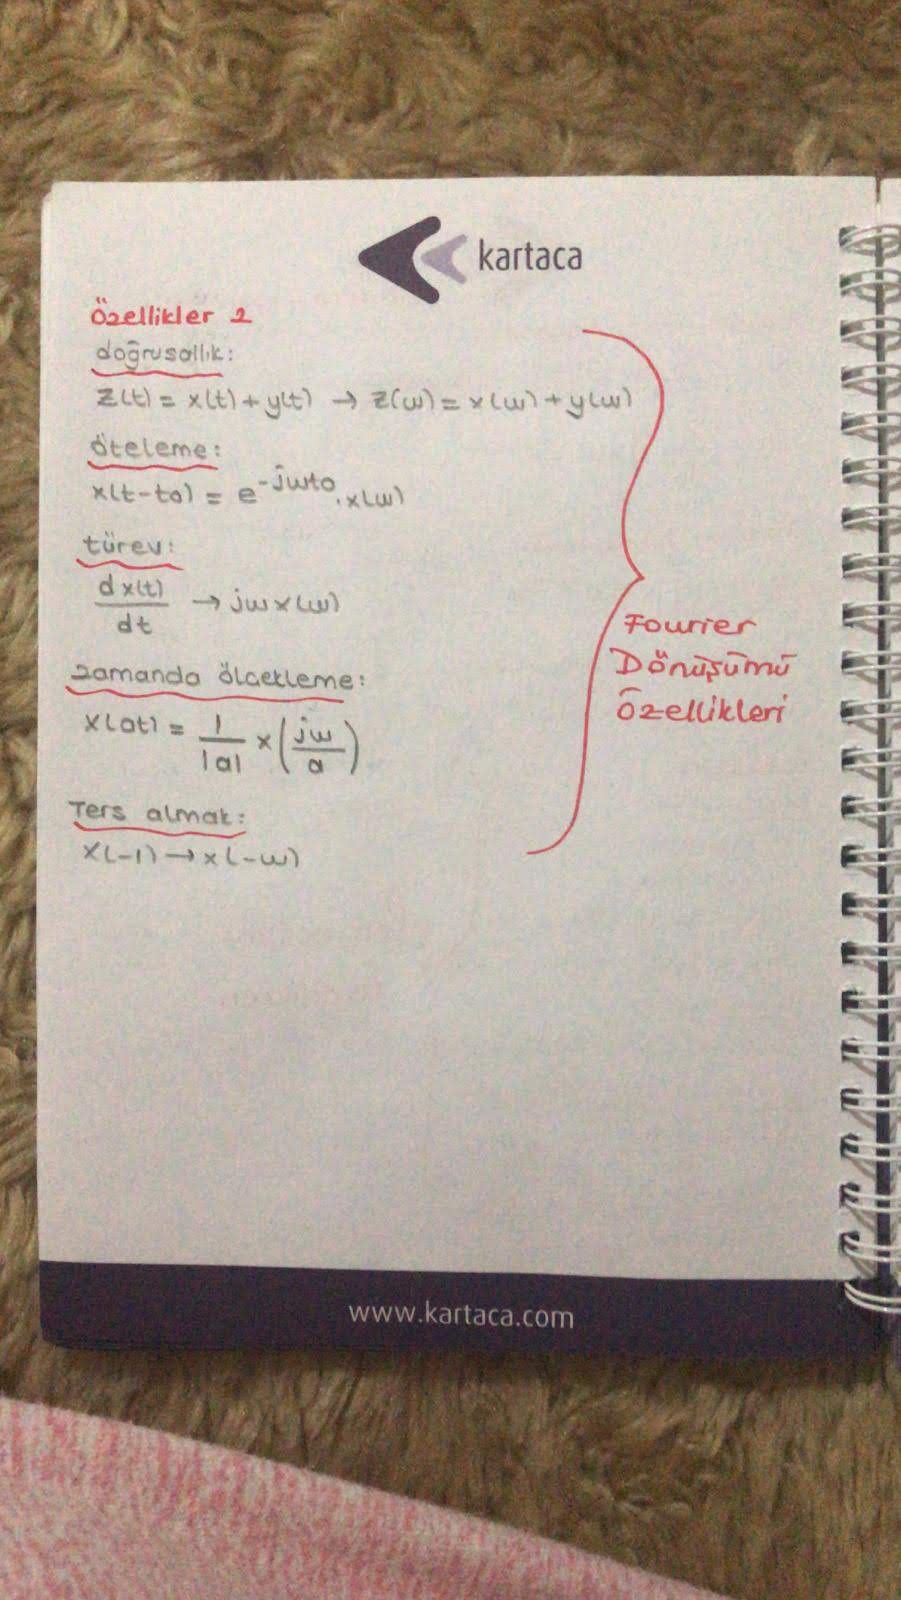 kartaca
Özellikler 2
doğrusallık:
z(t) = x(t) + y(t) → z(w) = x(w) + y(w)
öteleme:
x(t-to) = e^-jwto . x(w)
türev:
dx(t)/dt → jw x(w)
zamanda ölçekleme:
x(at) = 1/|a| x (jw/a)
Ters almak:
x(-1) → x(-w)
Fourier
Dönüşümü
Özellikleri
www.kartaca.com